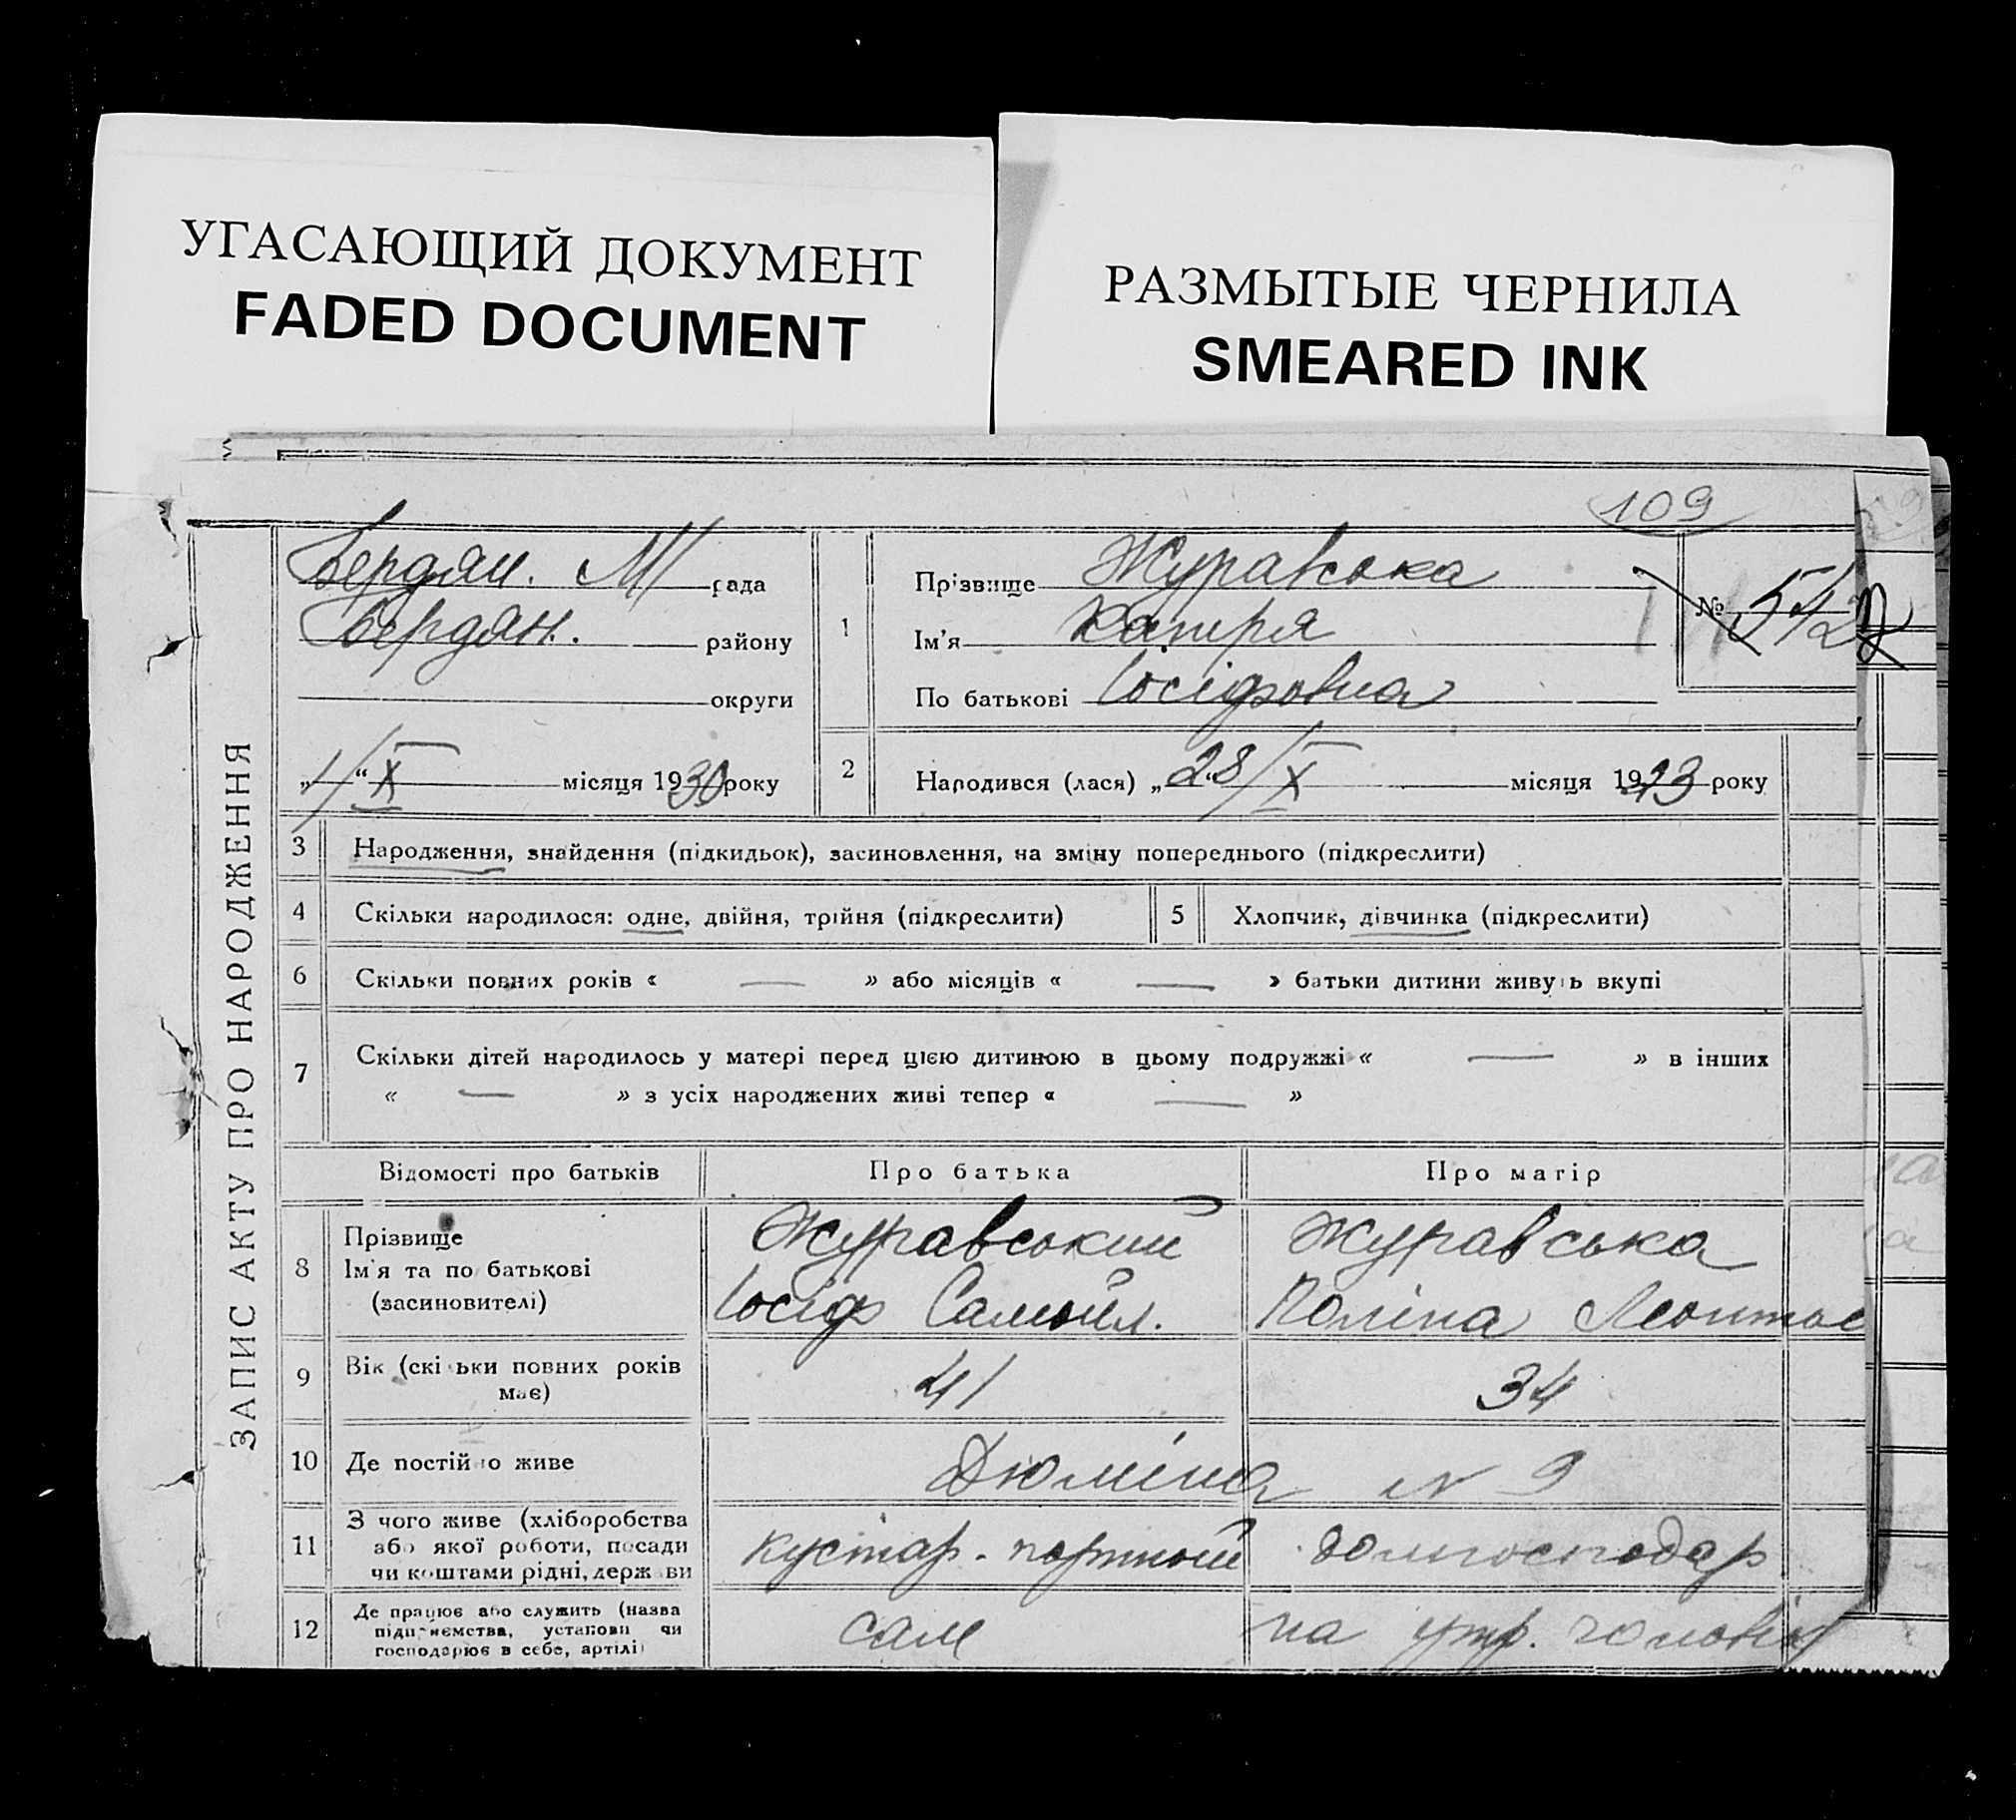 УГАСАЮЩИЙ ДОКУМЕНТ
FADED DOCUMENT
РАЗМЫТЫЕ ЧЕРНИЛА
SMEARED INK
109
ЗАПИС АКТУ ПРО НАРОДЖЕННЯ
Бердян. М/ рада
Бердян. району
округи
„1/“ X місяця 1930 року
1
Прізвище Журавська
Ім'я
По батькові Іосіфовна
№ 542
2 Народився (лася) „28/X місяця 1913 року
3 Народження, знайдення (підкидьок), засиновлення, на зміну попереднього (підкреслити)
4 Скільки народилося: одне, двійня, трійня (підкреслити)
5 Хлопчик, дівчинка (підкреслити)
6 Скільки повних років « — » або місяців « — » батьки дитини живуть вкупі
7 Скільки дітей народилось у матері перед цією дитиною в цьому подружжі « — » в інших
« — » з усіх народжених живі тепер « — »
Відомості про батьків Про батька Про матір
8 Прізвище Журавський Журавська
Ім'я та по батькові Іосіф Самойл. Поліна Леонтьє
(засиновителі)
9 Вік (скільки повних років має) 41 34
10 Де постійно живе Дюміна № 9
11 З чого живе (хліборобства
або якої роботи, посади
чи коштами рідні, держави
кустар-портной домогосподар
12 Де працює або служить (назва
підприємства, установи чи
господарює в себе, артілі)
сам на утр. чоловік